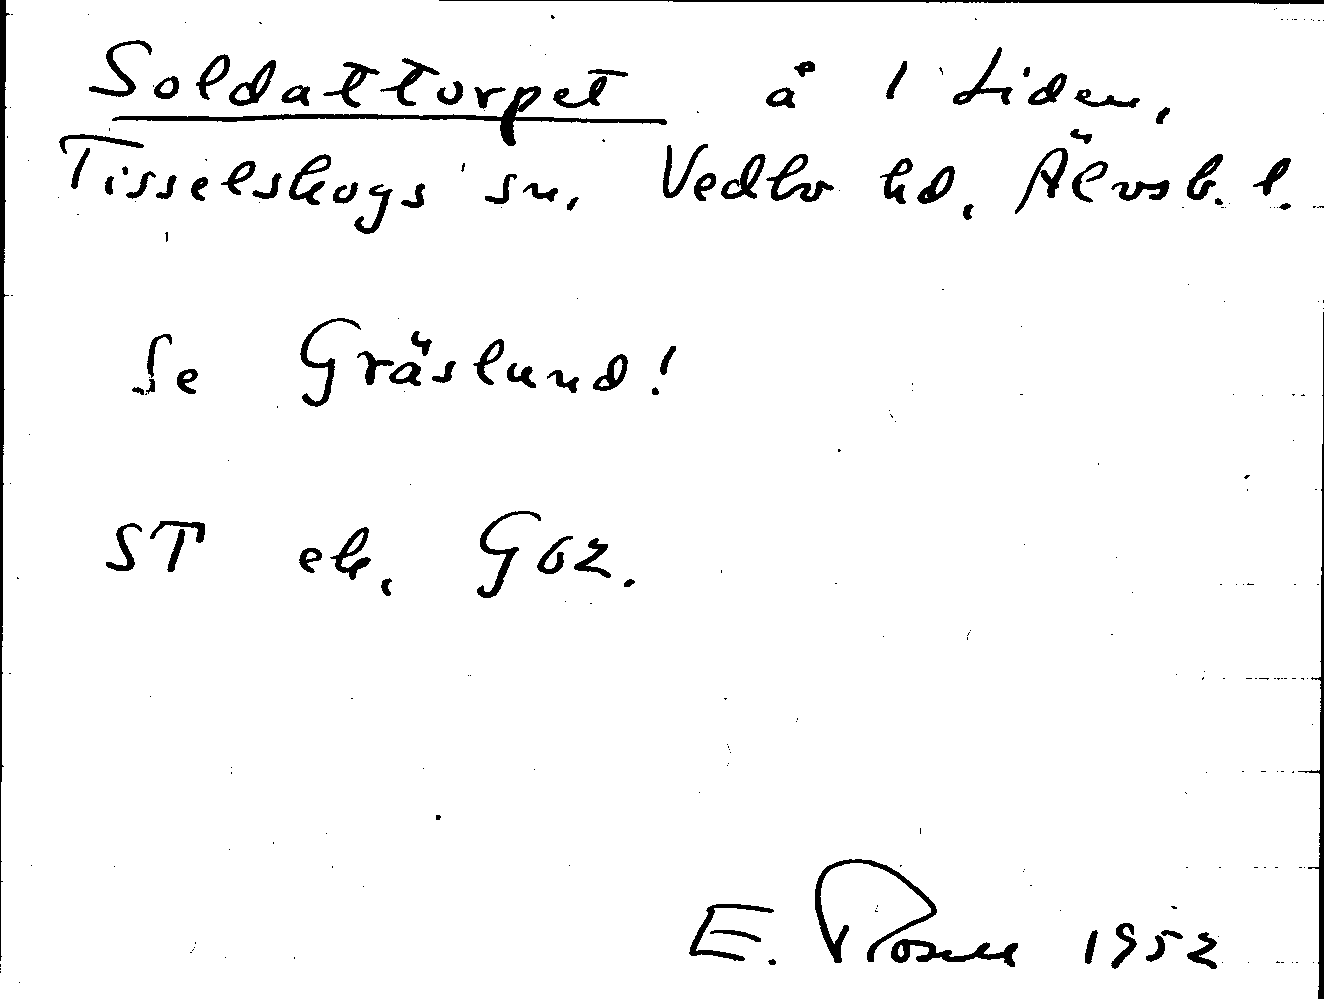 Soldattorpet å 1 Liden,
Tisselskogs sn, Vedbo hd, Älvsb. l.
Se Gräslund!
ST ek. G62.
E. Rosell 1952